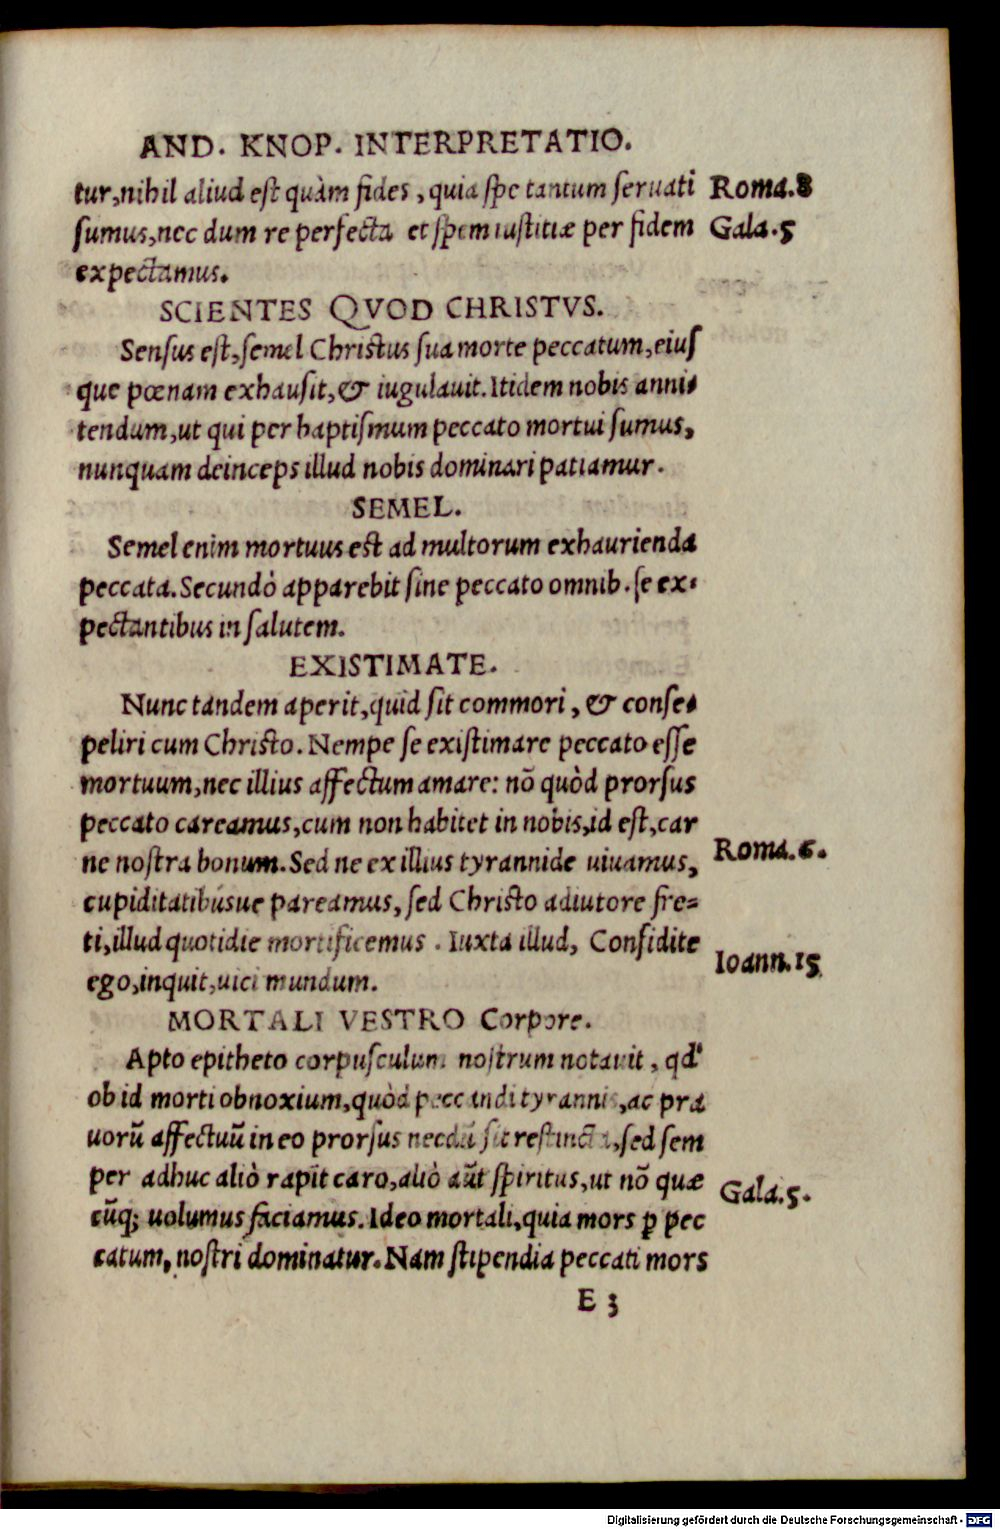 AND. KNOP. INTERPRETATIO.
tur, nihil aliud est quàm fides, quia spe tantum seruati Roma.8
sumus, nec dum re perfecta et spem iustitiæ per fidem Gala.5
expectamus.
SCIENTES QVOD CHRISTVS.
Sensus est, semel Christus sua morte peccatum, eius
que pœnam exhausit, & iugulauit. Itidem nobis anni-
tendum, ut qui per baptismum peccato mortui sumus,
nunquam deinceps illud nobis dominari patiamur.
SEMEL.
Semel enim mortuus est ad multorum exhaurienda
peccata. Secundò apparebit sine peccato omnib. se ex-
pectantibus in salutem.
EXISTIMATE.
Nunc tandem aperit, quid sit commori, & conse-
peliri cum Christo. Nempe se existimare peccato esse
mortuum, nec illius affectum amare: nō quòd prorsus
peccato careamus, cum non habitet in nobis, id est, car
ne nostra bonum. Sed ne ex illius tyrannide uiuamus, Roma.6.
cupiditatibusue pareamus, sed Christo adiutore fre-
ti, illud quotidie mortificemus. Iuxta illud, Confidite
ego, inquit, uici mundum. Ioann.15
MORTALI VESTRO Corpore.
Apto epitheto corpusculum nostrum notauit, qd'
ob id morti obnoxium, quòd peccandi tyrannis, ac pra
uorū affectuū in eo prorsus necdū sit restincta, sed sem
per adhuc aliò rapit caro, aliò aūt spiritus, ut nō quæ Gala.5.
cūq; uolumus faciamus. Ideo mortali, quia mors ꝑ pec
catum, nostri dominatur. Nam stipendia peccati mors
E 3
Digitalisierung gefördert durch die Deutsche Forschungsgemeinschaft - DFG